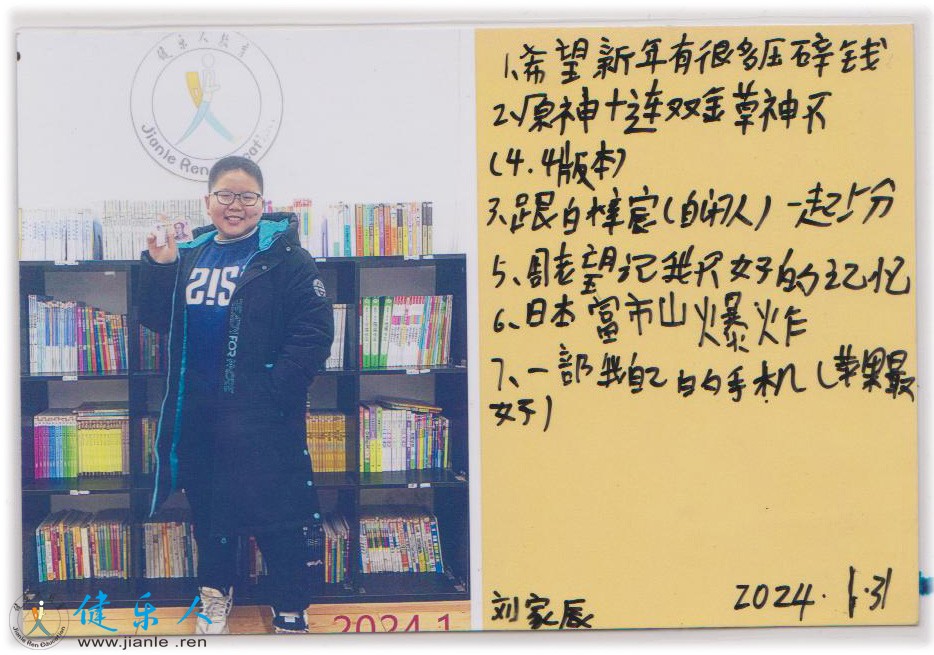 健乐人教育
Jianle Ren Education
2IS
READY FOR MORE
2024.1
1.希望新年有很多压碎钱
2.原神十连双金草神不
(4.4版本)
3.跟白梓宸(自闭人)一起上分
5.周老望记我不好的记忆
6.日本富市山爆炸
7.一部我自己的手机(苹果最
好)
刘家辰
2024.1.31
健乐人
www.jianle.ren